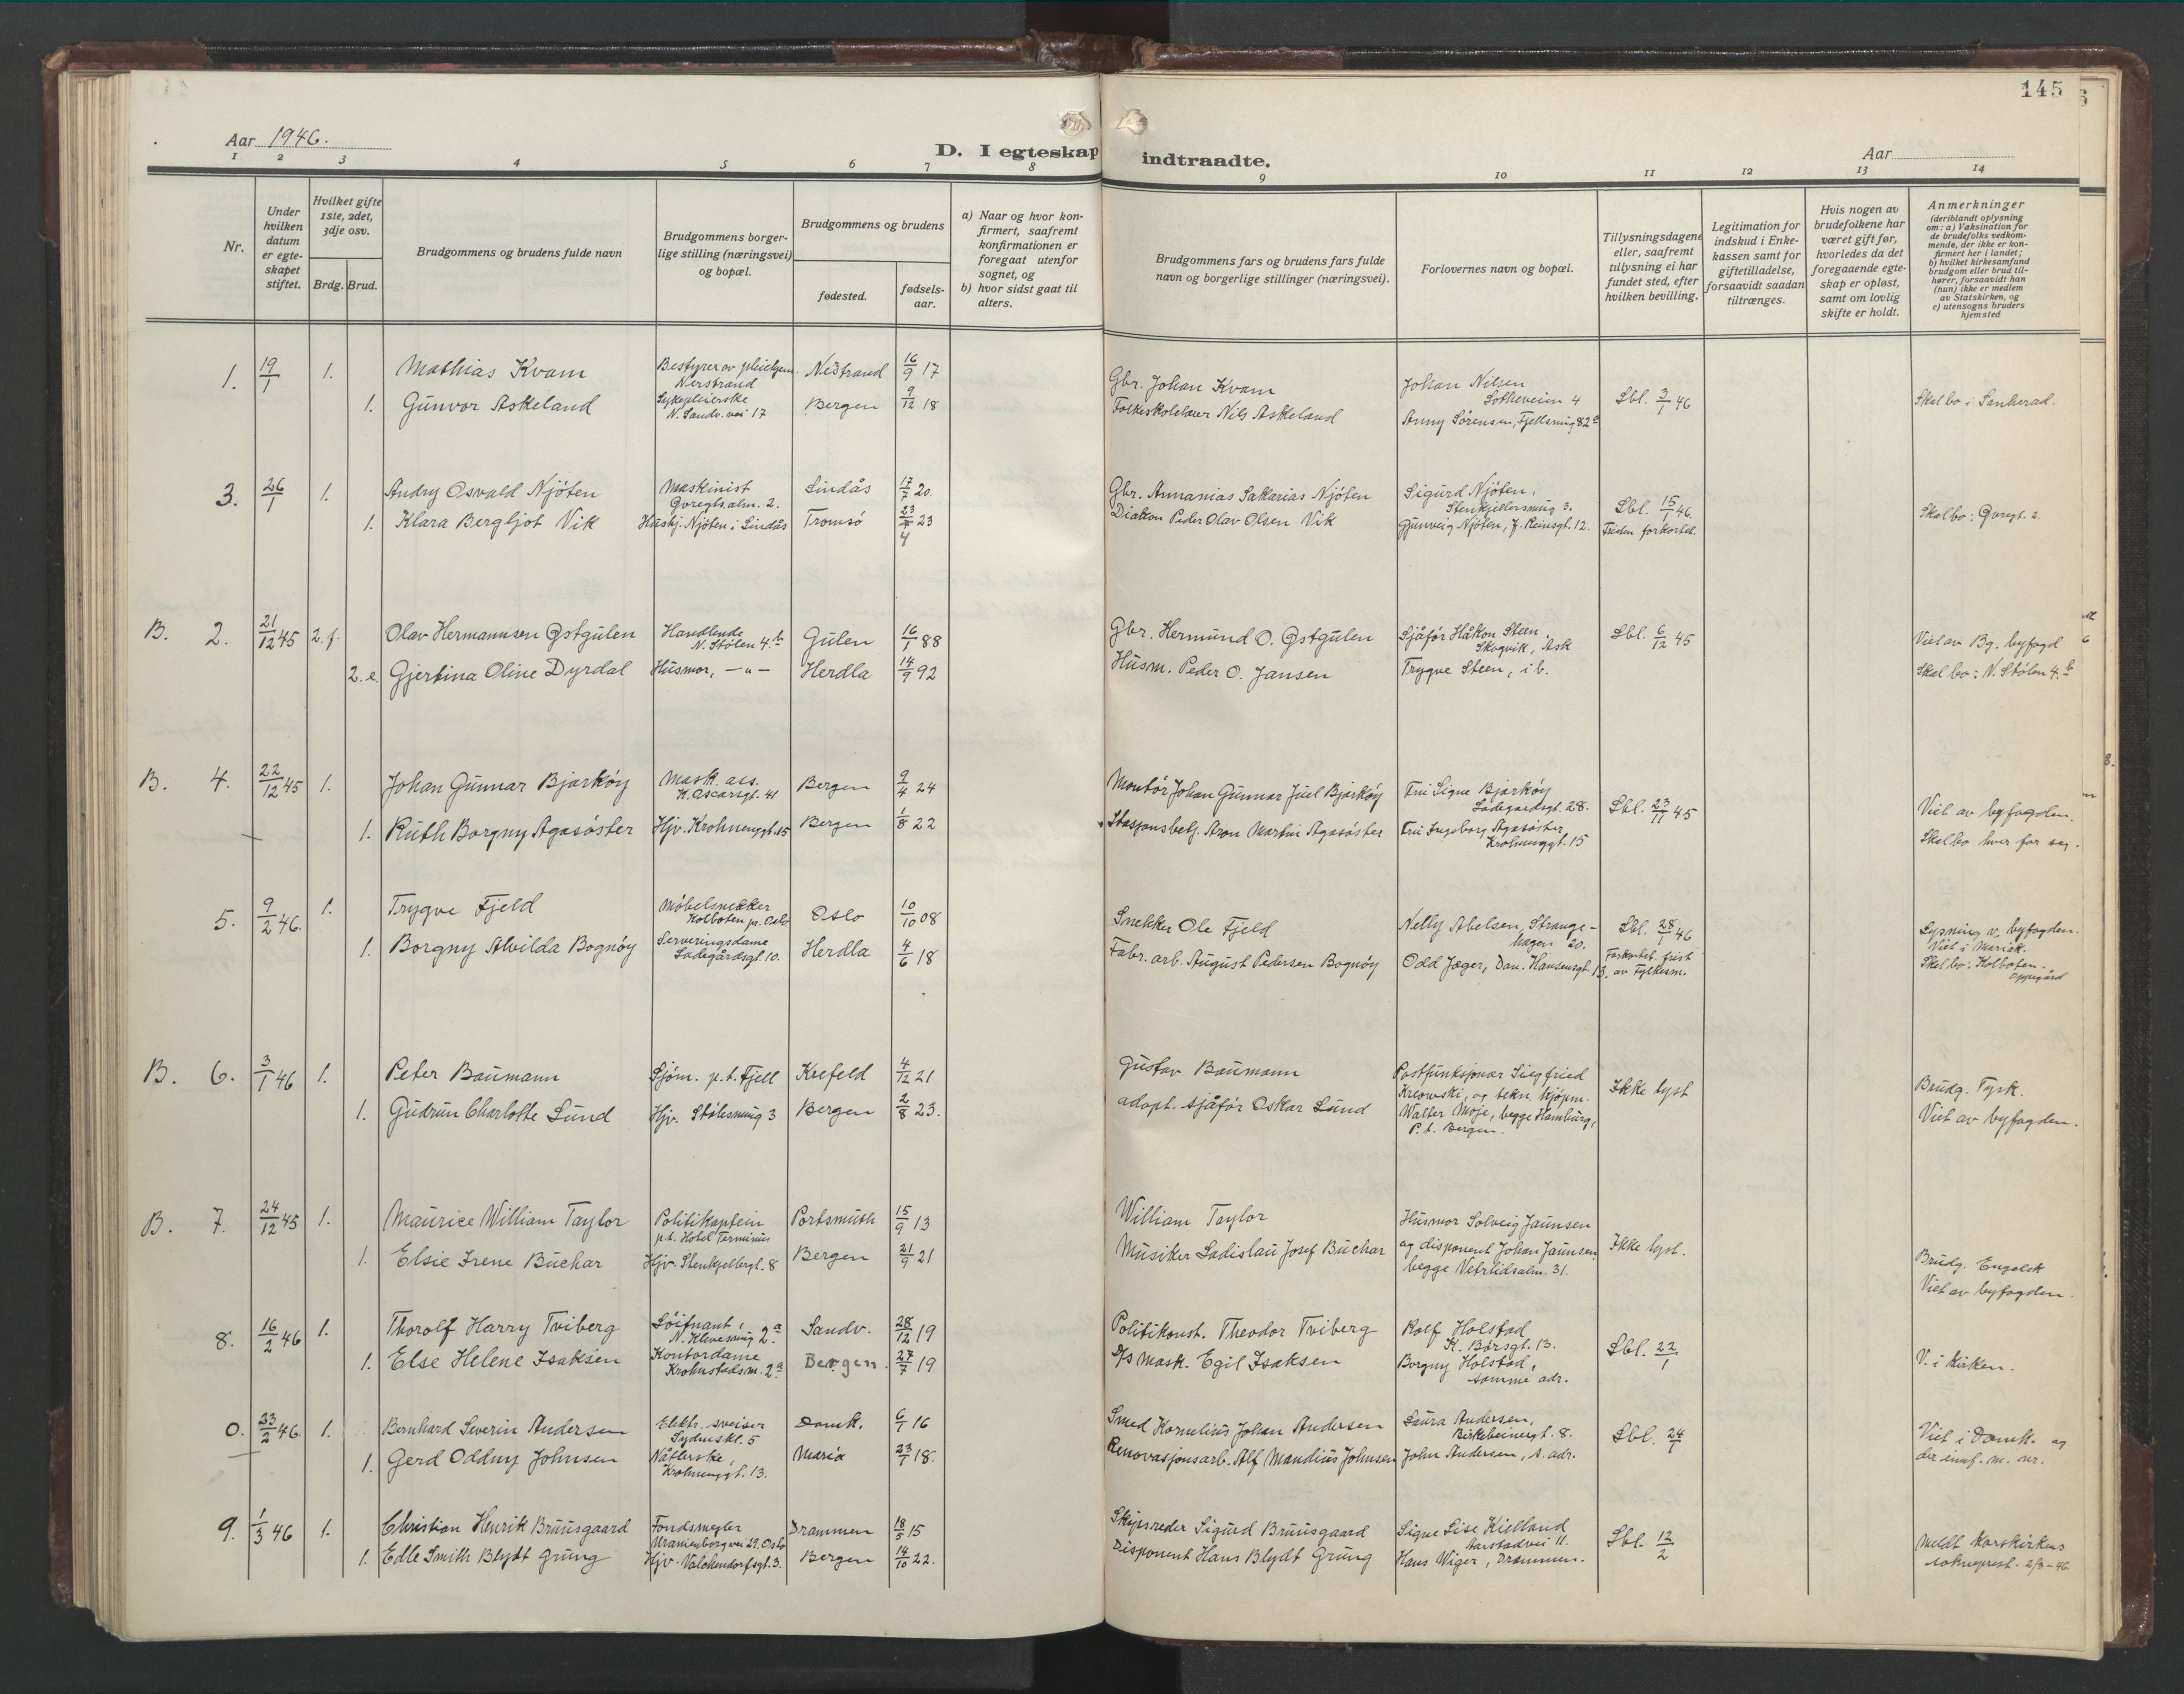 145
Aar 1946.
D. I egteskap indtraadte.
Aar
1 2 3 4 5 6 7 8 9 10 11 12 13 14
Nr.
Under hvilken datum er egteskapet stiftet.
Hvilket gifte 1ste, 2det, 3dje osv.
Brdg. Brud.
Brudgommens og brudens fulde navn
Brudgommens borgerlige stilling (næringsvei) og bopæl.
Brudgommens og brudens
fødested.
fødselsaar.
a) Naar og hvor konfirmert, saafremt konfirmationen er foregaat utenfor sognet, og
b) hvor sidst gaat til alters.
Brudgommens fars og brudens fars fulde navn og borgerlige stillinger (næringsvei).
Forlovernes navn og bopæl.
Tillysningsdagene eller, saafremt tillysning ei har fundet sted, efter hvilken bevilling.
Legitimation for indskud i Enkekassen samt for giftetilladelse, forsaavidt saadan tiltrænges.
Hvis nogen av brudefolkene har været gift før, hvorledes da det foregaaende egteskap er opløst, samt om lovlig skifte er holdt.
Anmerkninger (deriblandt oplysning om: a) Vaksination for de brudefolks vedkommende, der ikke er konfirmert her i landet; b) hvilket kirkesamfund brudgom eller brud tilhører, forsaavidt han (hun) ikke er medlem av Statskirken, og c) utensogns bruders hjemsted
1. 19/1 1. Mathias Kvam Bestyrer av pleiehjem. Nerstrand Nestrand 16/9 17 Gbr. Johan Kvam Johan Nilsen Sotheveien 4 Lbl. 3/1 46 Skal bo i Sankerad.
1. Gunvor Askeland Sykepleierske N. Sandv. vei 17 Bergen 9/12 18 Folkeskolelærer Nils Askeland Anny Sørensen, Fjellsmug 82a
3. 26/1 1. Andry Osvald Njöten Maskinist Øvregts.alm. 2. Lindås 17/7 20. Gbr. Annanias Sakarias Njöten Sigurd Njöten, Stenkjellersmug 3. Lbl. 15/1 46. Skal bo: Øvregt. 2.
1. Klara Bergljot Vik Hushj. Njöten i Lindås Tromsö 23/4 23 Diakon Peder Olav Olsen Vik Gunveig Njöten, J. Reinsgt. 12. Fristen forkortet.
B. 2. 21/12 45 2. f. Olav Hermannsen Østgulen Handlende N. Stölen 4.b Gulen 16/1 88 Gbr. Hermund O. Østgulen Sjåför Håkon Steen, Skogvik, Ask Lbl. 6/12 45 Viet av Bg. byfogd
2. e. Gjertina Oline Dyrdal Husmor, — " — Herdla 14/9 92 Husm. Peder O. Jansen Trygve Steen, i b. Skal bo: N. Stölen 4.b
B. 4. 22/12 45 1. Johan Gunnar Bjarköy Mask. ass. K. Oscarsgt. 41 Bergen 9/4 24 Montör Johan Gunnar Juel Bjarköy Fru Signe Bjarköy Ladegardsgt. 28. Lbl. 23/11 45 Viet av byfogden.
1. Ruth Borgny Agasöster Hjv. Krohnenggt. 15 Bergen 1/8 22 Stasjonsbetj. Aron Martin Agasöster Fru Ingeborg Agasöster, Krohnenggt. 15 Skal bo hver for seg.
5. 9/2 46. 1. Trygve Fjeld Möbelsnekker Kolboten pr. Oslo Oslo 10/10 08 Snekker Ole Fjeld Nelly Abelsen, Strangehagen 20. Lbl. 28/1 46 Lysning v. byfogden.
1. Borgny Alvilda Bognöy Serveringsdame Ladegårdsgt. 10. Herdla 4/6 18 Fabr. arb. August Pedersen Bognöy Odd Jæger, Dan. Hansensgt. 13. Forkortet frist av Fylkesm. Viet i Mariak. Skal bo: Kolboten. Oppegård
B. 6. 3/1 46 1. Peter Baumann Sjöm. p.t. Fjell Krefeld 4/12 21 Gustav Baumann Postfunksjonær Siegfried Krlowski, og tekn. kjöpm. Walter Moje, begge Hamburg, P.t. Bergen. Ikke lyst Brudg. Tysk.
1. Gudrun Charlotte Lund Hjv. Stölesmug 3 Bergen 2/8 23. adopt. sjåför Oskar Lund Viet av byfogden.
B. 7. 24/12 45 1. Maurice William Taylor Politikaptein p.t. Hotel Terminus Portsmuth 15/9 13 William Taylor Husmor Solveig Jaunsen og disponent Johan Jaunsen, begge Vetrlidsalm. 31. Ikke lyst. Brudg. Engelsk
1. Elsie Irene Buchar Hjv. Stenkjellergt. 8 Bergen 21/9 21 Musiker Ladislau Josef Buchar Viet av byfogden.
8. 16/2 46 1. Thorolf Harry Tviberg Löitnant, N. Klevesmug 2.a Sandv. 28/12 19 Politikonst. Theodor Tviberg Rolf Holstad K. Börsgt. 13. Lbl. 22/1 V. i kirken.
1. Else Helene Isaksen Kontordame Krohnstadsm. 2a Bergen. 27/7 19 D/S Mask. Egil Isaksen Borgny Holstad, samme adr.
0. 23/2 46 1. Bernhard Severin Andersen Elektr. sveiser Sydneskl. 5 Domk. 6/1 16 Smed Kornelius Johan Andersen Laura Andersen, Birkebeinergt. 8. Lbl. 24/1 Viet i Domk. og der innf. m. nr.
1. Gerd Oddny Johnsen Nåtlerske, Krohnenggt. 13. Maria 23/1 18. Renovasjonsarb. Alf Mandius Johnsen John Andersen, s. adr.
9. 1/3 46 1. Christian Henrik Bruusgaard Fondsmegler Uranienborgvei 29. Oslo Drammen 18/5 15 Skipsreder Sigurd Bruusgaard Signe Lise Kielland Aarstadvei 11. Lbl. 12/2 Meldt Korskirkens sokneprest. 2/3-46
1. Edle Smith Blydt Grung Hjv. Valckendorfsgt. 3. Bergen 14/10 22. Disponent Hans Blydt Grung Hans Wiger, Drammen.